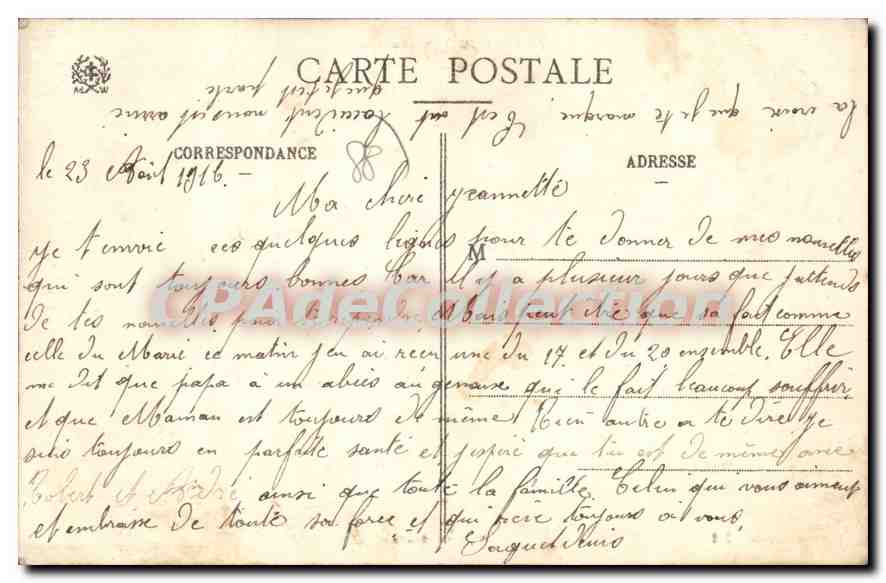 CARTE POSTALE
M W
la croix que je te marque C'est ou nous nous
CORRESPONDANCE
88
ADRESSE
le 23 Avril 1916.
Ma chère Jeannette
M
Je t'envoie ces quelques lignes pour te donner de mes nouvelles
qui sont toujours bonnes Car Il y a plusieur jours que j'attends
de tes nouvelles Mais peut être que sa fait comme
celle du Marie ce matin j'en ai reçu une du 17 et du 20 ensemble. Elle
me dit que papa à un abcès au genoux qui le fait beaucoup souffrir
et que Maman est toujours de même Rien autre a te dire je
suis toujours en parfaite santé et j'espère que tu est de même avec
Robert et André ainsi que toute la famille. Celui qui vous aiment
et embrasse de toute sa force et qui pense toujours a vous
CPAdeCollection